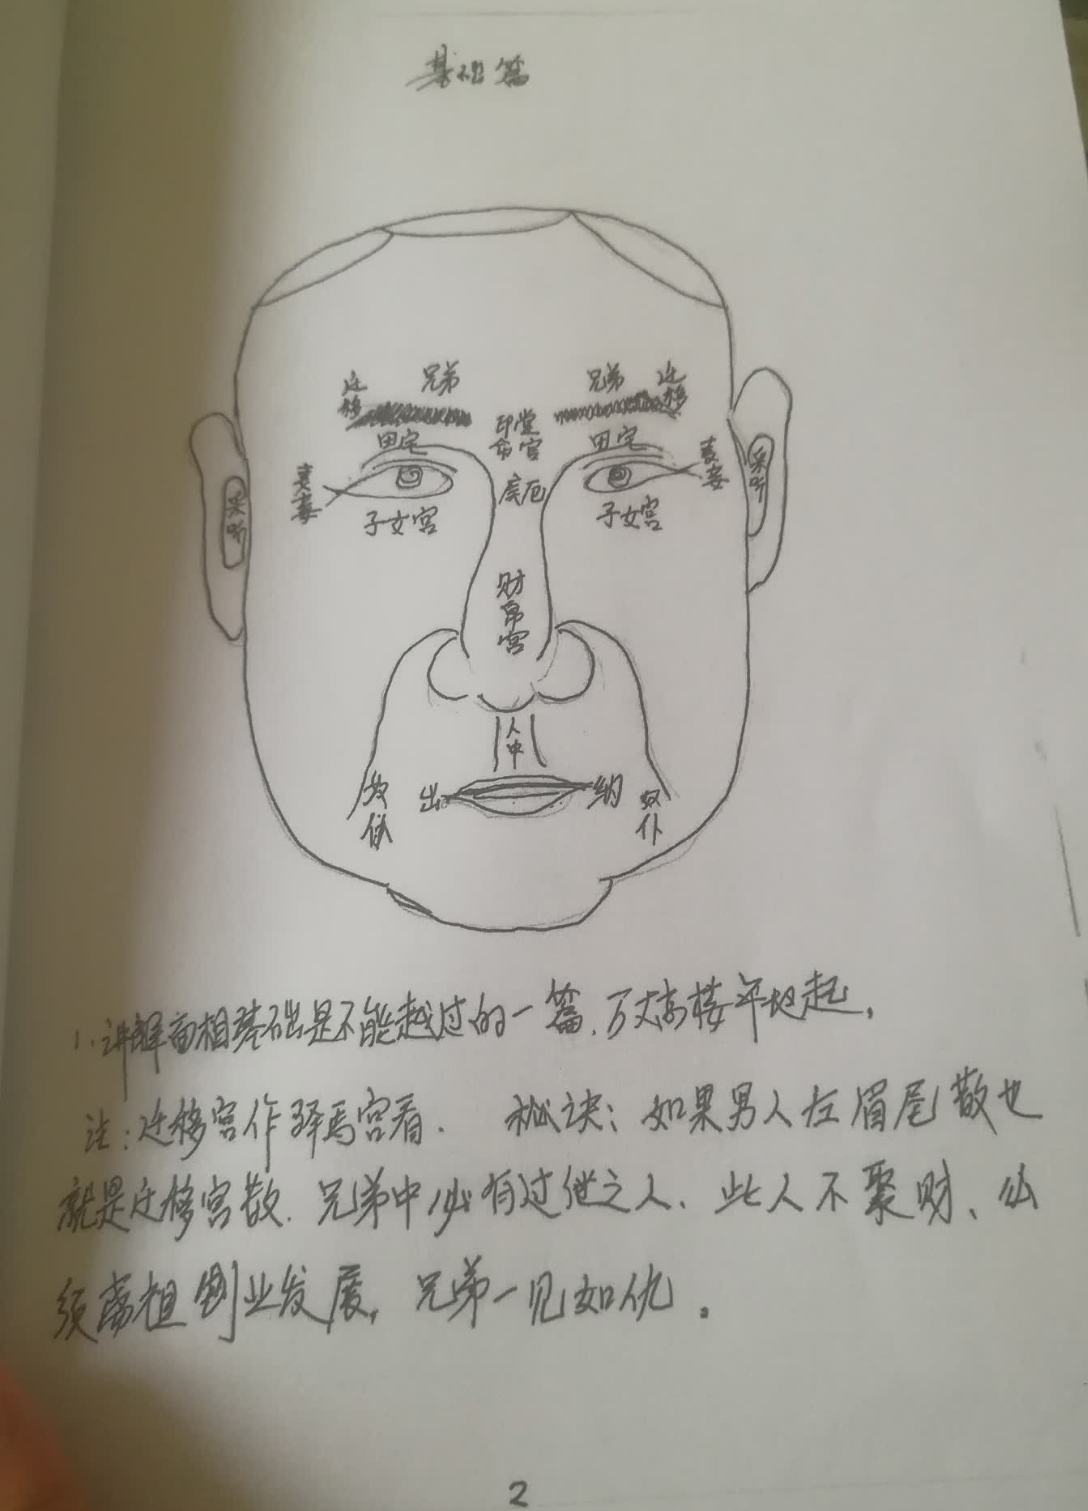 基础篇
迁移 兄弟 兄弟 迁移
印堂
命宫
田宅 田宅
妻妾 疾厄 妻妾
采听 采听
子女宫 子女宫
财帛宫
人中
出 纳
奴仆 奴仆
1.讲解面相基础是不能越过的一篇.万丈高楼平地起,
注:迁移宫作驿马宫看. 秘诀:如果男人左眉尾散也
就是迁移宫散.兄弟中必有过继之人、此人不聚财、必
须离祖创业发展,兄弟一见如仇。
2